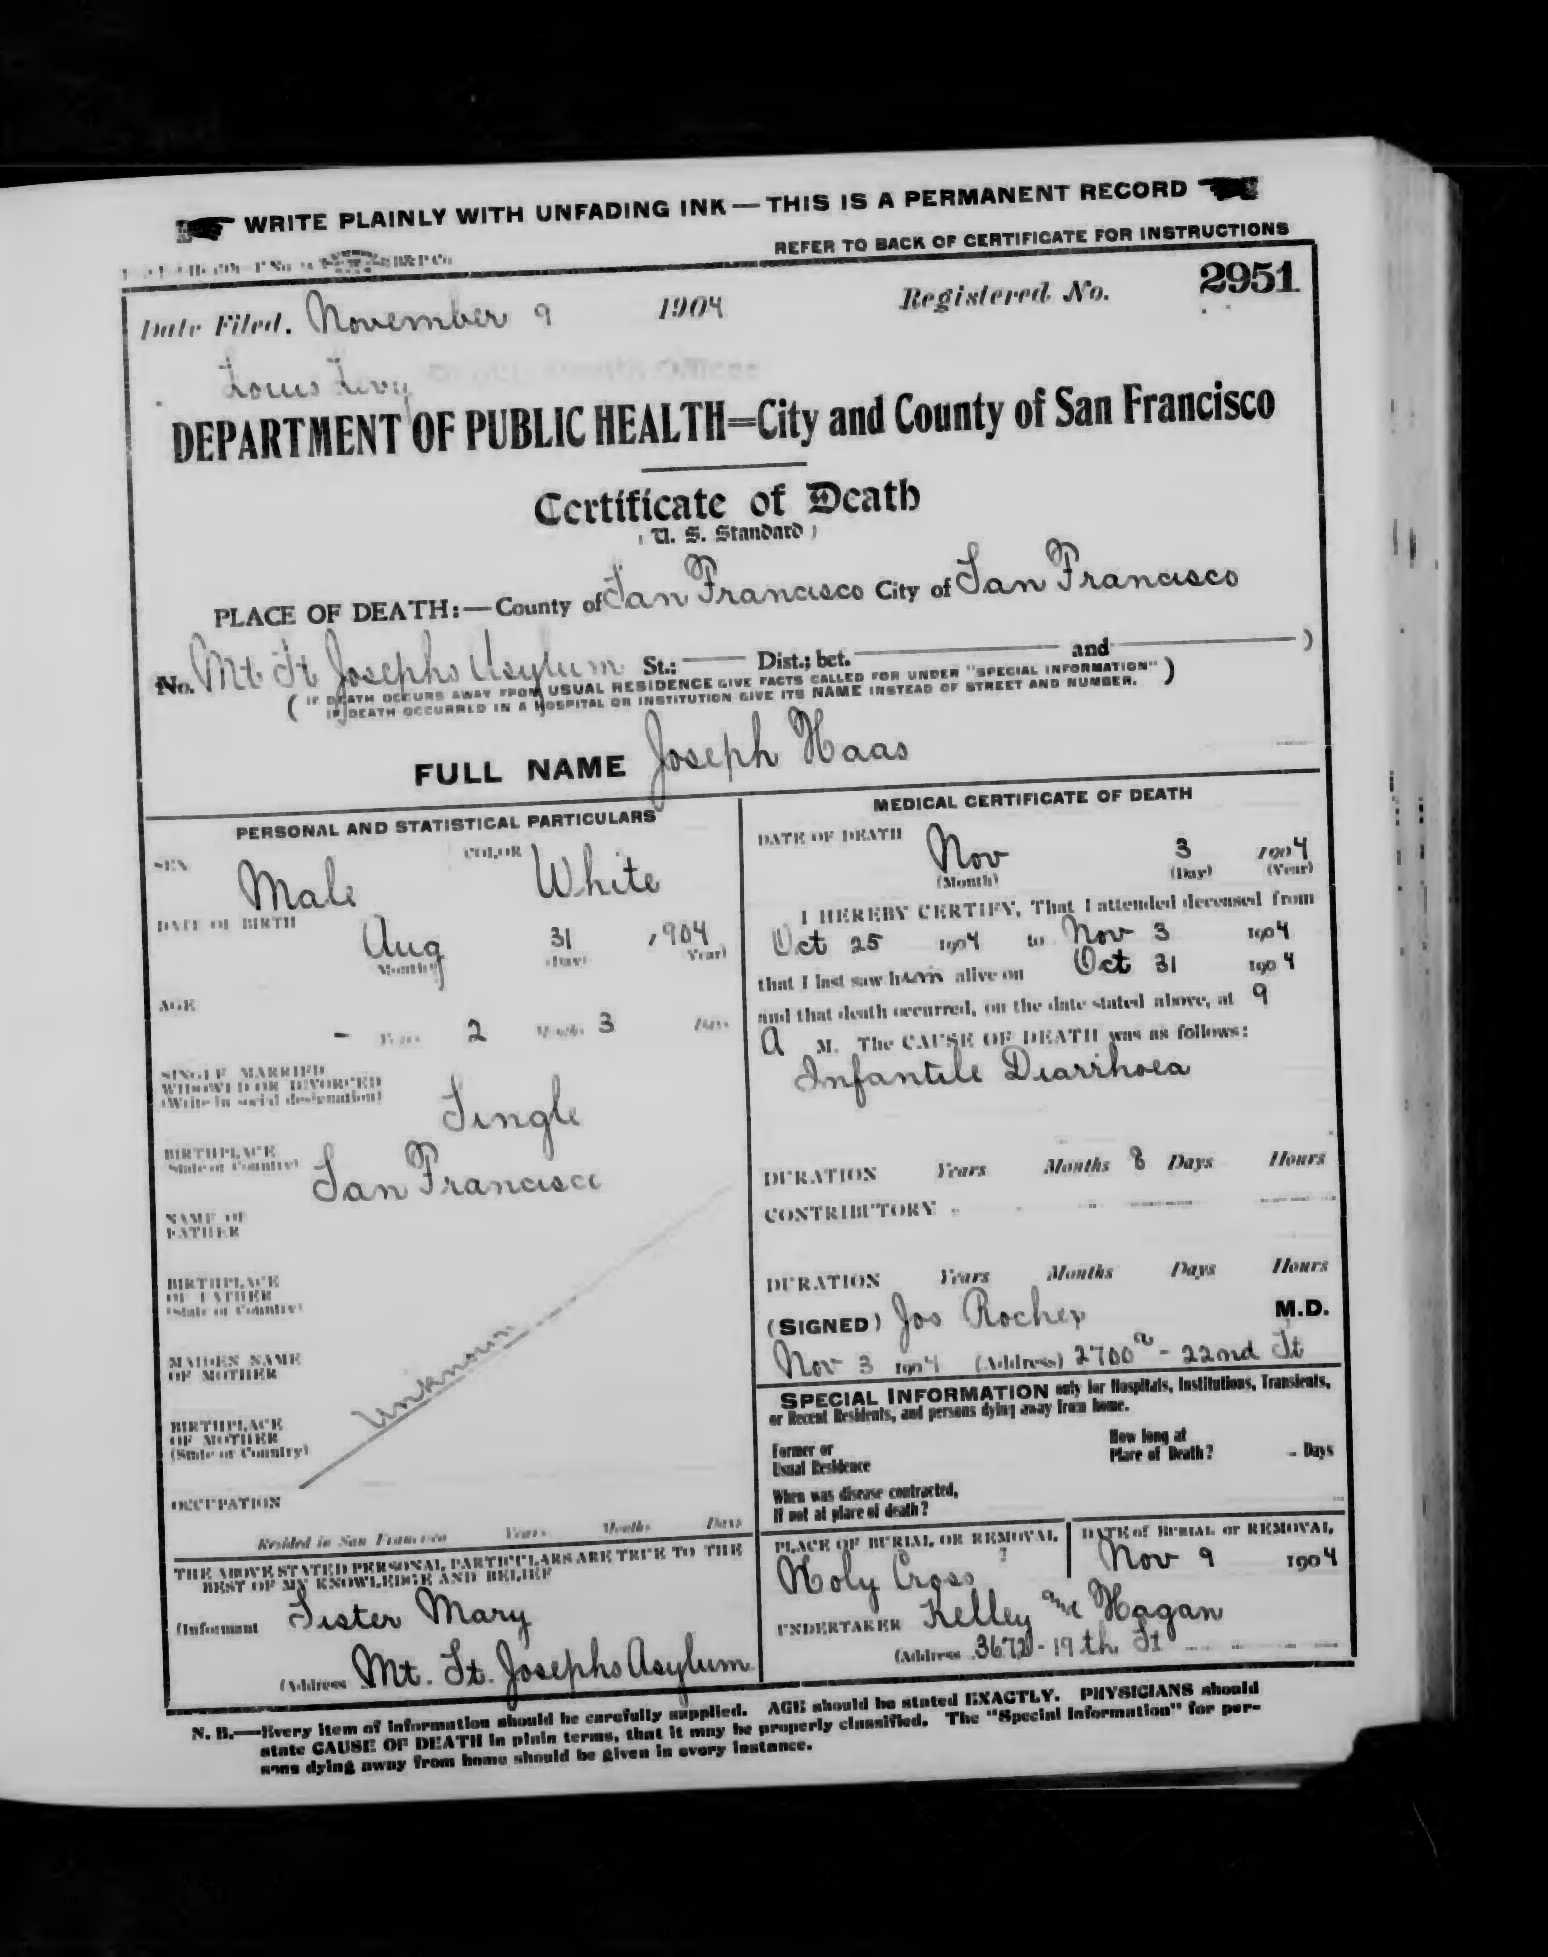 WRITE PLAINLY WITH UNFADING INK — THIS IS A PERMANENT RECORD
REFER TO BACK OF CERTIFICATE FOR INSTRUCTIONS
Date Filed. November 9 1904 Registered No. 2951
Louis Levy
DEPARTMENT OF PUBLIC HEALTH=City and County of San Francisco
Certificate of Death
(U. S. Standard)
PLACE OF DEATH:—County of San Francisco City of San Francisco
No. Mt St Josephs Asylum St.; Dist.; bet. and )
( IF DEATH OCCURS AWAY FROM USUAL RESIDENCE GIVE FACTS CALLED FOR UNDER "SPECIAL INFORMATION" )
IF DEATH OCCURRED IN A HOSPITAL OR INSTITUTION GIVE ITS NAME INSTEAD OF STREET AND NUMBER.
FULL NAME Joseph Haas
PERSONAL AND STATISTICAL PARTICULARS
SEX Male COLOR White
DATE OF BIRTH
Aug 31 1904
(Month) (Day) (Year)
AGE
- Years 2 Months 3 Days
SINGLE MARRIED
WIDOWED OR DIVORCED
(Write in social designation)
Single
BIRTHPLACE
(State or Country) San Francisco
NAME OF
FATHER
BIRTHPLACE
OF FATHER
(State or Country)
MAIDEN NAME
OF MOTHER
Unknown
BIRTHPLACE
OF MOTHER
(State or Country)
OCCUPATION
Resided in San Francisco Years Months Days
THE ABOVE STATED PERSONAL PARTICULARS ARE TRUE TO THE
BEST OF MY KNOWLEDGE AND BELIEF
(Informant Sister Mary
(Address Mt. St. Josephs Asylum
MEDICAL CERTIFICATE OF DEATH
DATE OF DEATH
Nov 3 1904
(Month) (Day) (Year)
I HEREBY CERTIFY, That I attended deceased from
Oct 25 1904 to Nov 3 1904
that I last saw him alive on Oct 31 1904
and that death occurred, on the date stated above, at 9
A M. The CAUSE OF DEATH was as follows:
Infantile Diarrhoea
DURATION Years Months 8 Days Hours
CONTRIBUTORY
DURATION Years Months Days Hours
(SIGNED) Jos Rocher M.D.
Nov 3 1904 (Address) 2700a - 22nd St
SPECIAL INFORMATION only for Hospitals, Institutions, Transients,
or Recent Residents, and persons dying away from home.
Former or
Usual Residence
How long at
Place of Death? Days
When was disease contracted,
If not at place of death?
PLACE OF BURIAL OR REMOVAL
Holy Cross
DATE of BURIAL or REMOVAL
Nov 9 1904
UNDERTAKER Kelley and Hagan
(Address 3672 - 19th St
N. B.—Every item of information should be carefully supplied. AGE should be stated EXACTLY. PHYSICIANS should
state CAUSE OF DEATH in plain terms, that it may be properly classified. The "Special Information" for per-
sons dying away from home should be given in every instance.